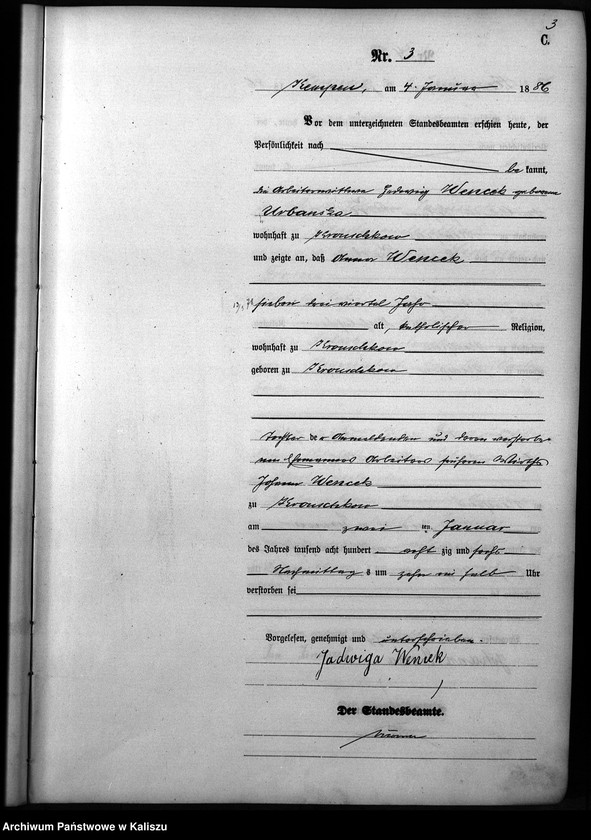 3
C.
Nr. 3
Kempen, am 4. Januar 1886
Vor dem unterzeichneten Standesbeamten erschien heute, der
Persönlichkeit nach
be kannt,
die Arbeiterwittwe Hedwig Wencek geborene
Urbanska
wohnhaft zu
und zeigte an, daß Anna Wencek
sieben drei viertel Jahr
alt, katholischer Religion,
wohnhaft zu
geboren zu
Tochter der Anmeldenden und deren verstorbe-
nen Ehemannes Arbeiters früheren Wirths
Johann Wencek
zu
am zwei ten Januar
des Jahres tausend acht hundert acht zig und sechs
Nachmittag s um zehn ein halb Uhr
verstorben sei
Vorgelesen, genehmigt und unterschrieben.
Jadwiga Wencek
Der Standesbeamte.
Archiwum Państwowe w Kaliszu